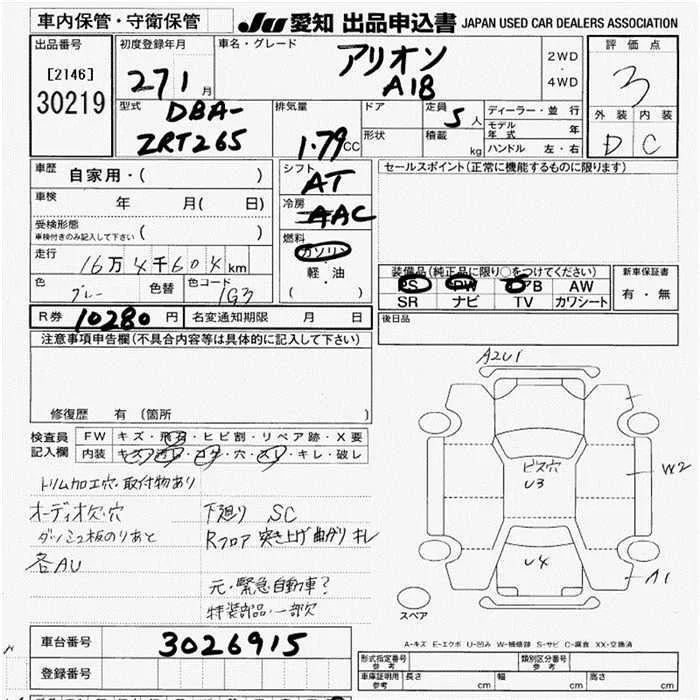 車内保管・守衛保管
JU 愛知 出品申込書 JAPAN USED CAR DEALERS ASSOCIATION
出品番号
[2146]
30219
初度登録年月
27 1 月
車名・グレード
アリオン
A18
2WD
・
4WD
評価点
3
外装 内装
D C
型式
DBA-
ZRT265
排気量
1.79 CC
ドア
形状
定員 5 人
積載 kg
ディーラー・並行
モデル年式 年
ハンドル 左・右
車歴 自家用・( )
車検 年 月( 日)
受検形態
車検付きのみ記入して下さい ( )
走行 16万4千604km
色 グレー 色替 色コード 1G3
シフト
AT
冷房
AAC
燃料
ガソリン
・
軽油
( )
セールスポイント(正常に機能するものに限ります)
装備品(純正品に限り○をつけてください)
PS PW AB AW
SR ナビ TV カワシート
新車保証書
有・無
後日品
R券 10280 円 名変通知期限 月 日
注意事項申告欄(不具合内容等は具体的に記入して下さい)
修復歴 有 (箇所 )
検査員
記入欄
FW キズ・飛石・ヒビ割・リペア跡・X要
内装 キズ・汚レ・コゲ・穴・スレ・キレ・破レ
トリム加工穴・取付物あり
オーディオ欠・穴
ダッシュ板のりあと
各AU
下廻り SC
Rフロア 突き上げ曲がり キレ
元・緊急自動車?
特装部品・一部欠
A2U1
ビス穴
U3
W2
U4
A1
スペア
A-キズ E-エクボ U-凹み W-補修跡 S-サビ C-腐食 XX-交換済
車台番号 3026915
登録番号
形式指定番号
参考
類別区分番号
参考
車庫証明用
参考
長さ cm 幅 cm 高さ cm